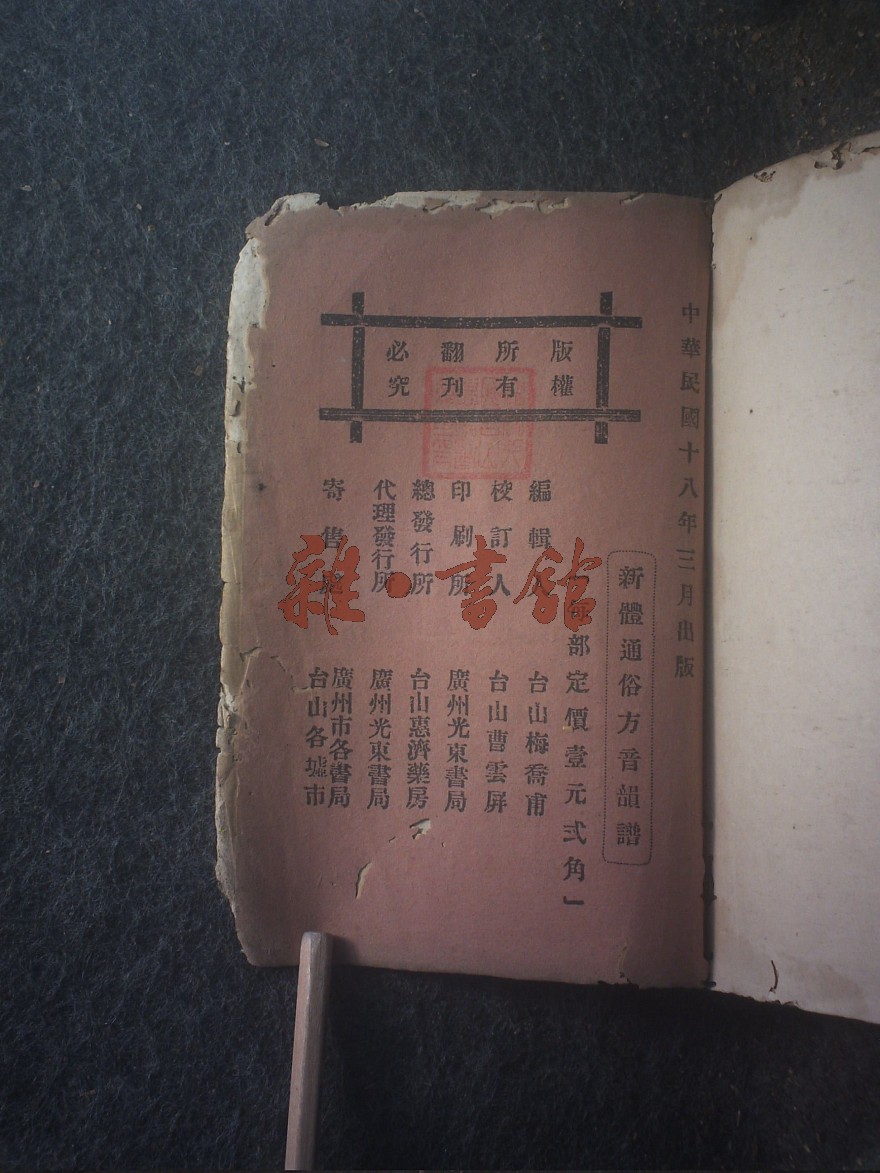 中華民國十八年三月出版
新體通俗方音韻譜
每部定價壹元弍角」
版權所有翻刊必究
編輯人 台山梅喬甫
校訂人 台山曹雲屏
印刷所 廣州光東書局
總發行所 台山惠濟藥房
代理發行所 廣州光東書局
寄售處 廣州市各書局
台山各墟市
雜·書館